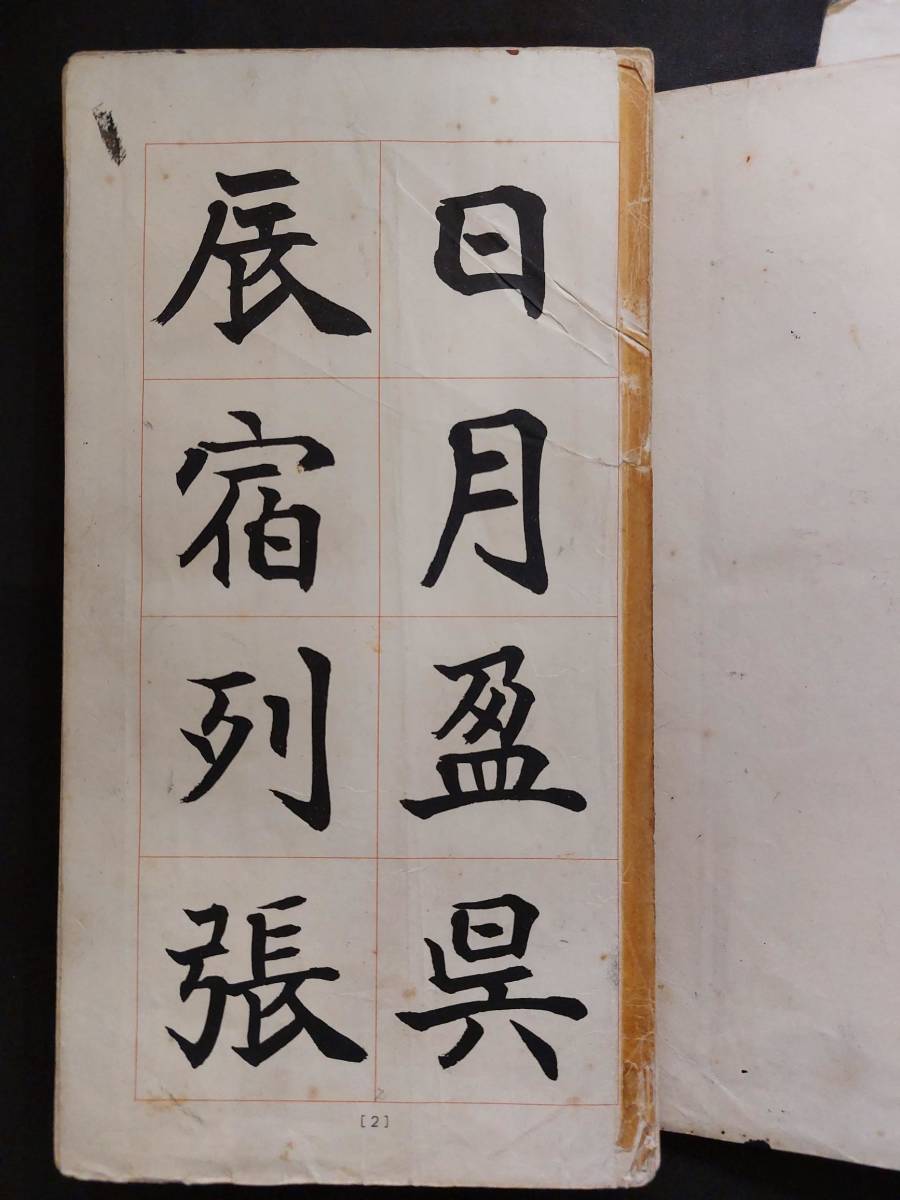 日月盈昗
辰宿列張
[2]